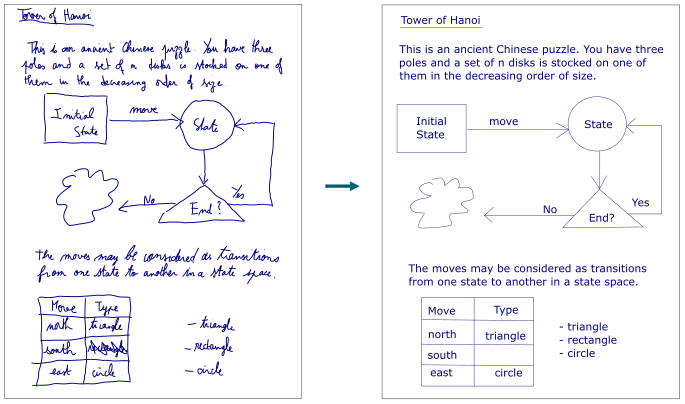 Tower of Hanoi
This is an ancient Chinese puzzle. You have three
poles and a set of n disks is stocked on one of
them in the decreasing order of size.
Initial
State
move
State
No
Yes
End?
The moves may be considered as transitions
from one state to another in a state space.
Move Type
north triangle
south
east circle
- triangle
- rectangle
- circle
Tower of Hanoi
This is an ancient Chinese puzzle. You have three
poles and a set of n disks is stocked on one of
them in the decreasing order of size.
Initial
State
move
State
No
Yes
End?
The moves may be considered as transitions
from one state to another in a state space.
Move Type
north triangle
south
east circle
- triangle
- rectangle
- circle